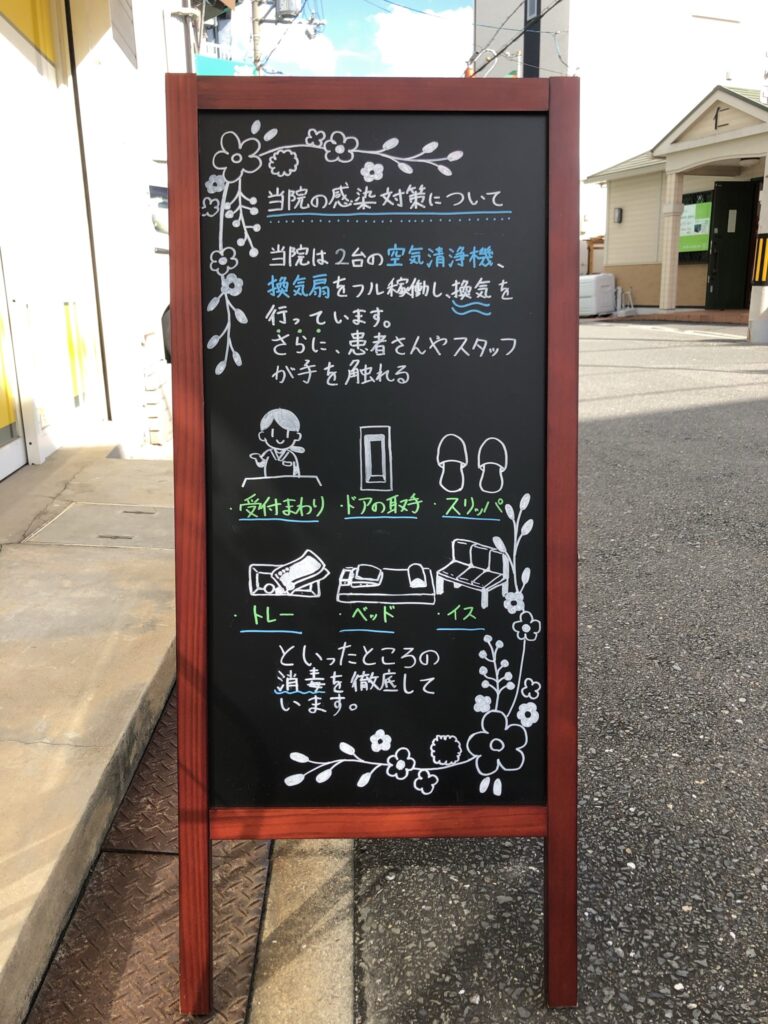 当院の感染対策について
当院は2台の空気清浄機、
換気扇をフル稼働し、換気を
行っています。
さらに、患者さんやスタッフ
が手を触れる
・受付まわり ・ドアの取手 ・スリッパ
・トレー ・ベッド ・イス
といったところの
消毒を徹底して
います。